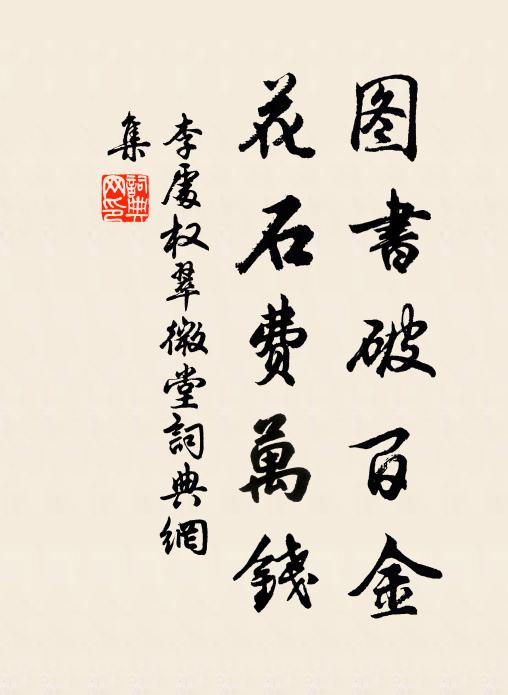 图書破百金
花石費萬錢
李處权翠微堂詞典網
集
詞典网印